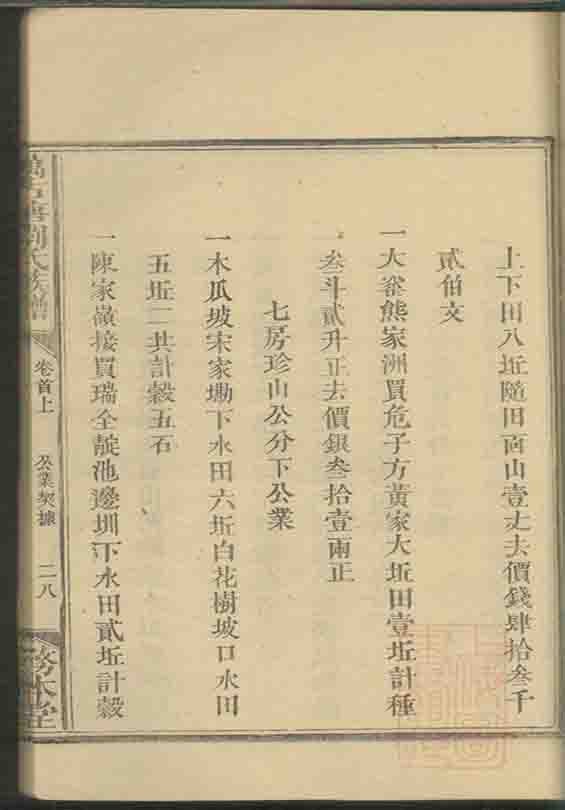 上下田八坵隨田面山壹丈去價錢肆拾叁千
貳伯文
一大崙熊家洲買危子方黃家大坵田壹坵計種
叁斗貳升正去價銀叁拾壹兩正
七房珍山公分下公業
一木瓜坡宋家塘下水田六坵白花樹坡口水田
五坵二共計穀五石
一陳家嶺接買瑞全靛池邊圳下水田貳坵計穀
劉氏族譜
卷首上
公業契據
二八
務本堂